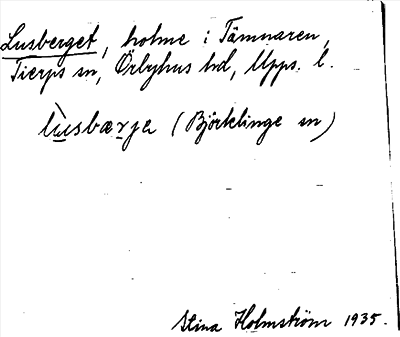 Lusberget, holme i Tämnaren,
Tierps sn, Örbyhus hd, Upps. l.
lùsbærja (Björklinge sn)
Stina Holmström 1935.